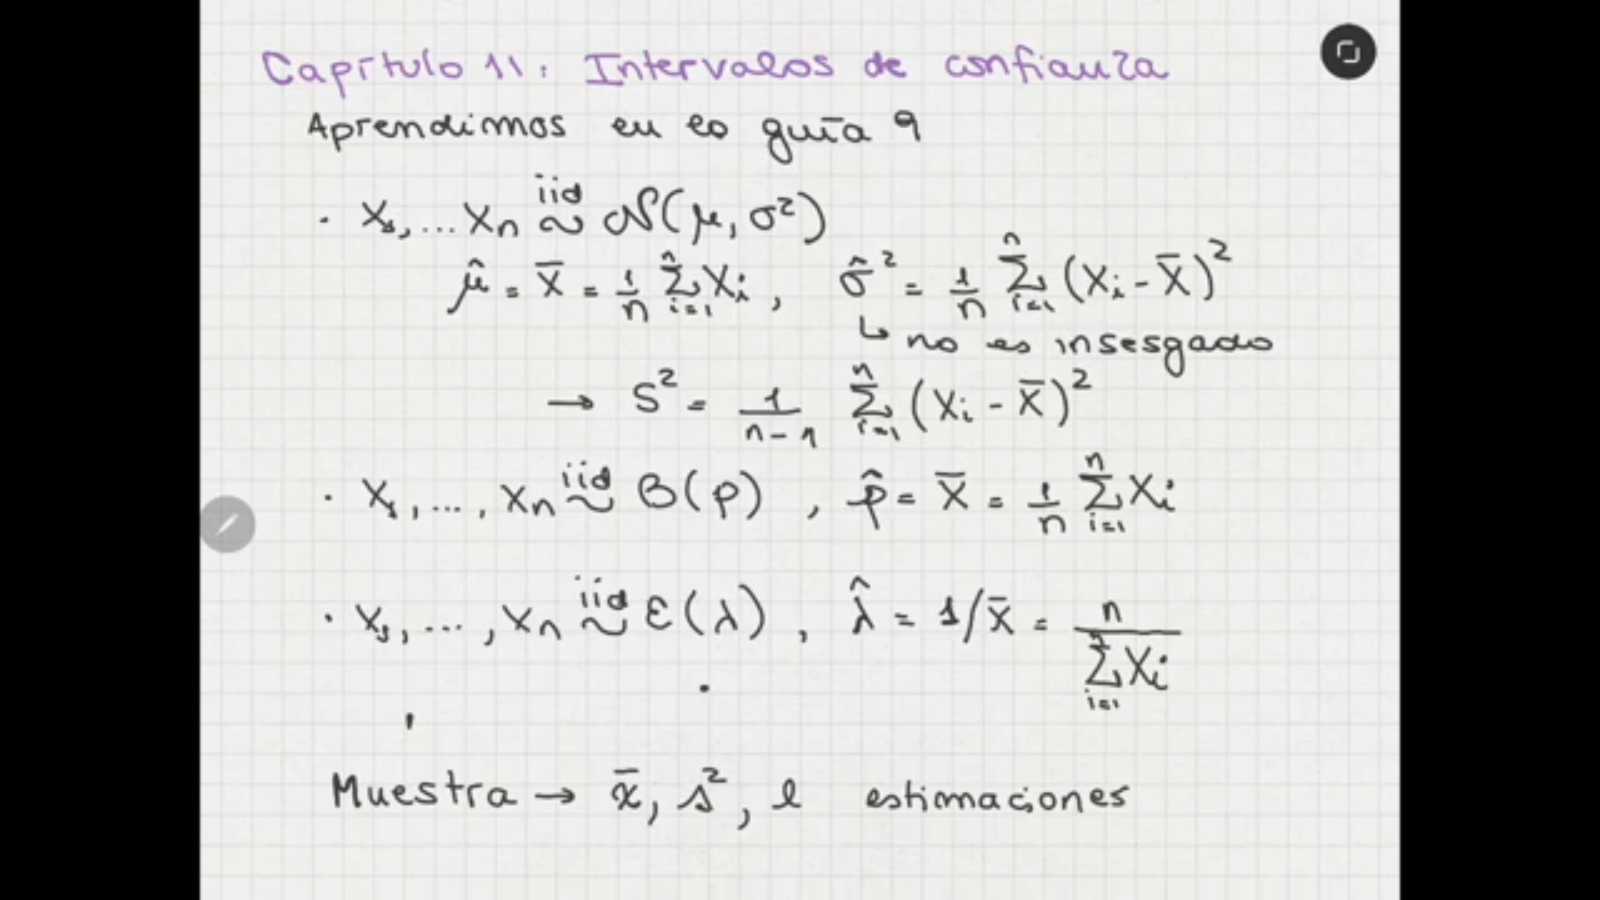 Capítulo 11: Intervalos de confianza
Aprendimos en la guía 9
· X₁, ... Xₙ iid ~ N(μ, σ²)
μ̂ = X̄ = 1/n ∑ᵢ₌₁ⁿ Xᵢ , σ̂² = 1/n ∑ᵢ₌₁ⁿ (Xᵢ - X̄)²
↳ no es insesgado
→ S² = 1/(n-1) ∑ᵢ₌₁ⁿ (Xᵢ - X̄)²
· X₁, ..., Xₙ iid ~ B(p) , p̂ = X̄ = 1/n ∑ᵢ₌₁ⁿ Xᵢ
· X₁, ..., Xₙ iid ~ Ɛ(λ) , λ̂ = 1/X̄ = n / ∑ᵢ₌₁ⁿ Xᵢ
Muestra → x̄, s², l estimaciones